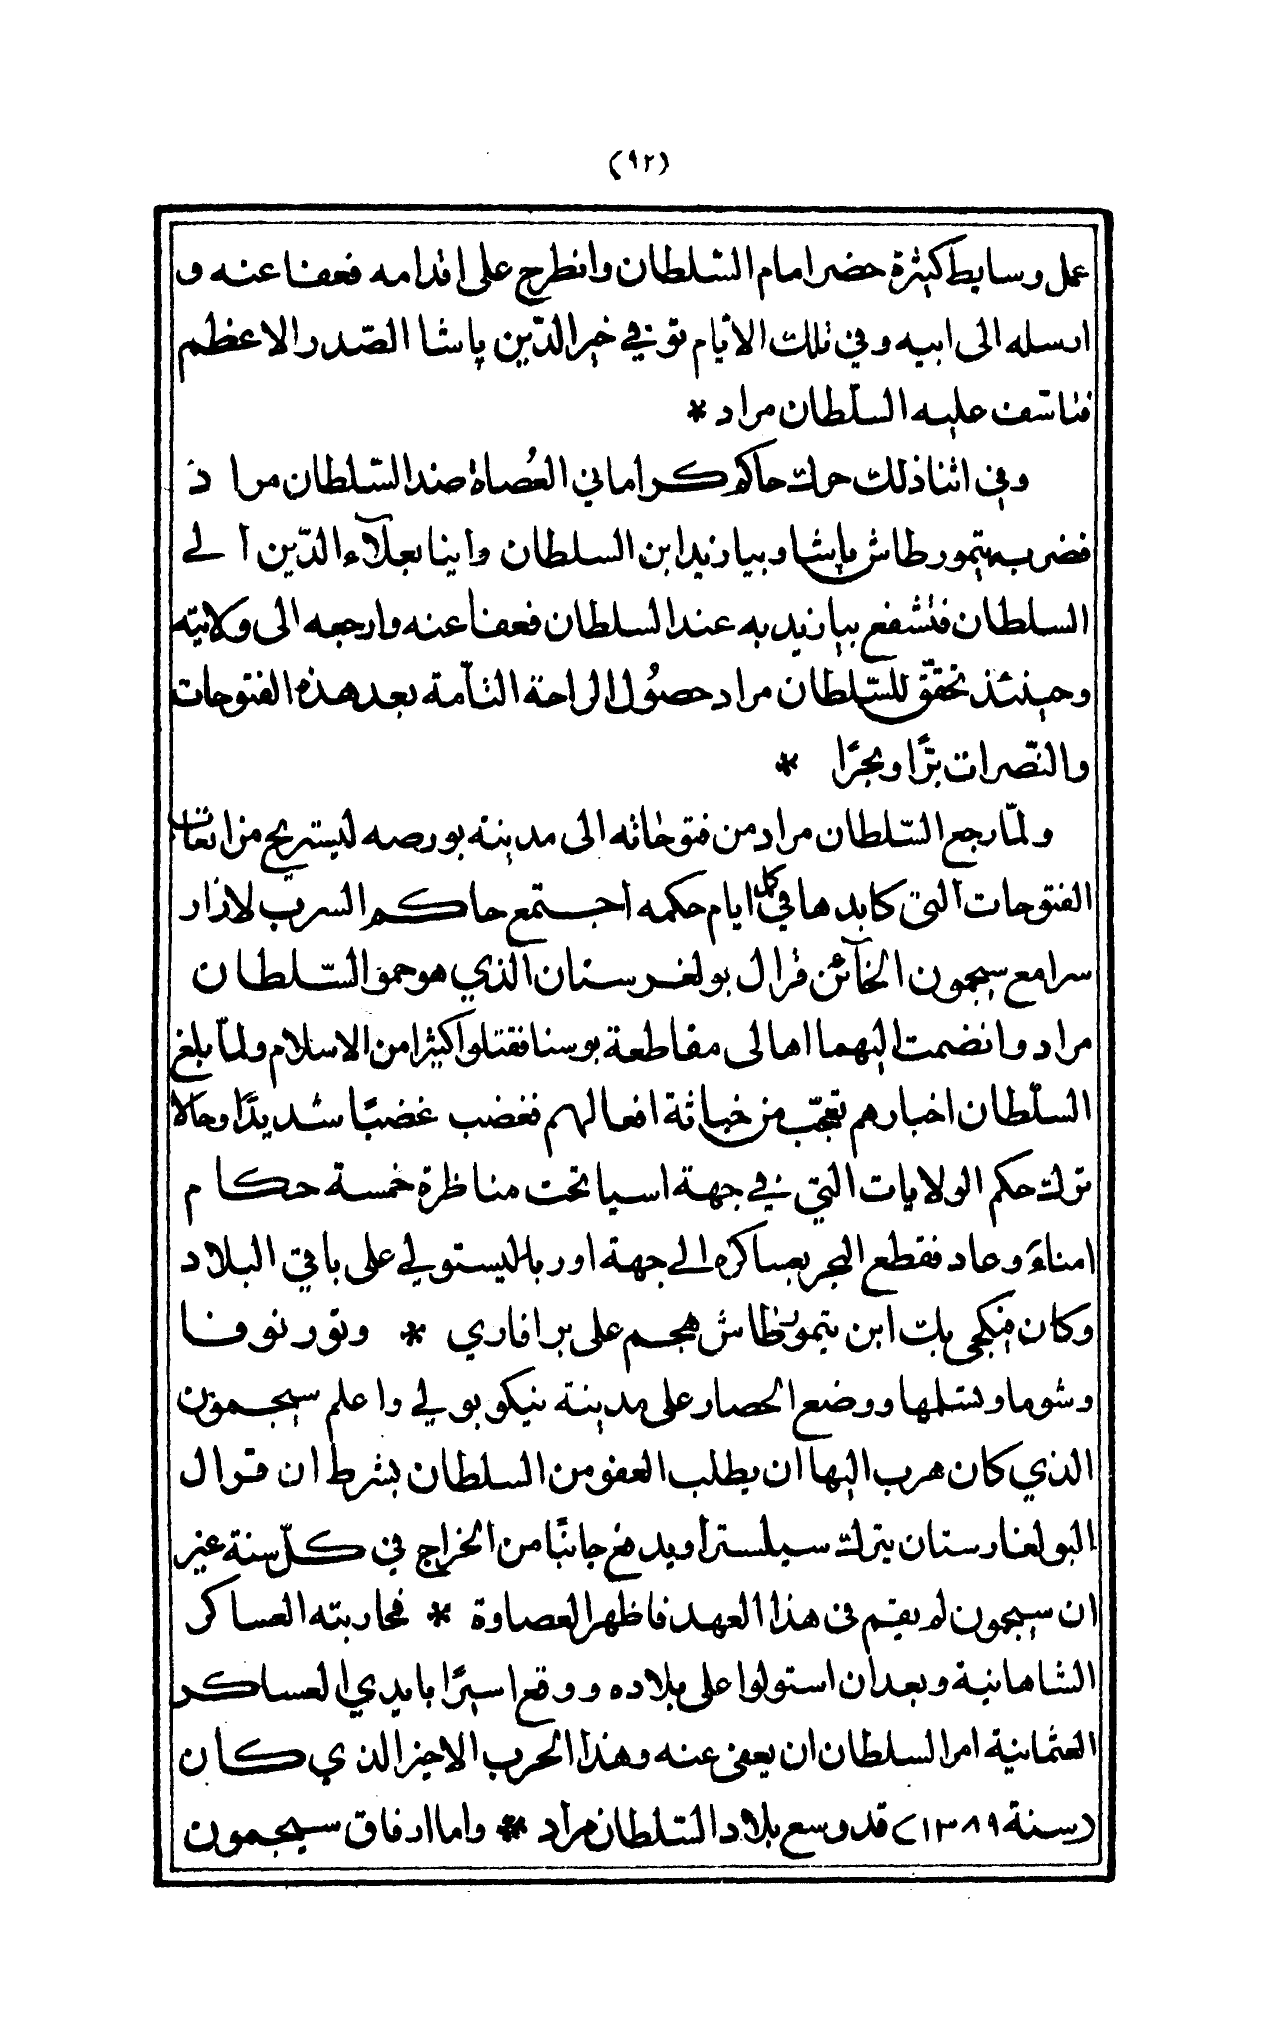 (٩٢)
عمل وسايط كثيرة حضر امام السّلطان وانطرح على اقدامه فعفا عنه و
ارسله الى ابيه وفي تلك الايّام توفي خير الدّين پاشا الصّدر الاعظم
فتاسّف عليه السلّطان مراد *
وفي اثنا ذلك حرك حاكم كراماني العُصاة ضد السّلطان مراد
فضربه تيمورطاش پاشا وبيازيد ابن السلطان واتيا بعلآء الدّين الى
السلطان فتشفع بيازيد به عند السلطان فعفا عنه وارجعه الى ولايته
وحينئذ تحقّق للسّلطان مراد حصُول الراحة التآمة بعد هذه الفتوحات
والنّصرات برًّا وبحرًا *
ولمّا رجع السّلطان مراد من فتوحاته الى مدينة بورصه ليستريح من اتعاب
الفتوحات التي كابدها في كل ايام حكمه اجتمع حاكم السرب لازار
سرا مع سيجمون الخآئن قرال بولغرستان الذي هو حمو السّلطان
مراد وانضمت اليهما اهالى مقاطعة بوسنا فقتلوا كثيرا من الاسلام ولمّا بلغ
السلّطان اخبارهم تعجّب من خباثة افعالهم فغضب غضبًا شديدًا وحالا
ترك حكم الولايات التي في جهة اسيا تحت مناظرة خمسة حكام
امناءَ وعاد فقطع البحر بعساكره الى جهة اوربا ليستولي على باقي البلاد
وكان منيكجي بك ابن تيمورطاش هجم على برافاري * وتورنوفا
وشوما وتسلمها ووضع الحصار على مدينة نيكوبولي واعلم سيجمون
الذي كان هرب اليها ان يطلب العفو من السلطان بشرط ان قرال
البولغارستان يترك سيلسترا ويدفع جانبًا من الخراج في كلّ سنة غير
ان سيجمون لم يقم في هذا العهد فاظهر العصاوة * فحاربته العساكر
الشاهانية وبعد ان استولوا على بلاده ووقع اسيرًا بايدي العساكر
العثمانية امر السلطان ان يعفى عنه وهذا الحرب الاخير الذي كان
(سنة ١٣٨٩) قد وسع بلاد السّلطان مراد * واما ارفاق سيجمون